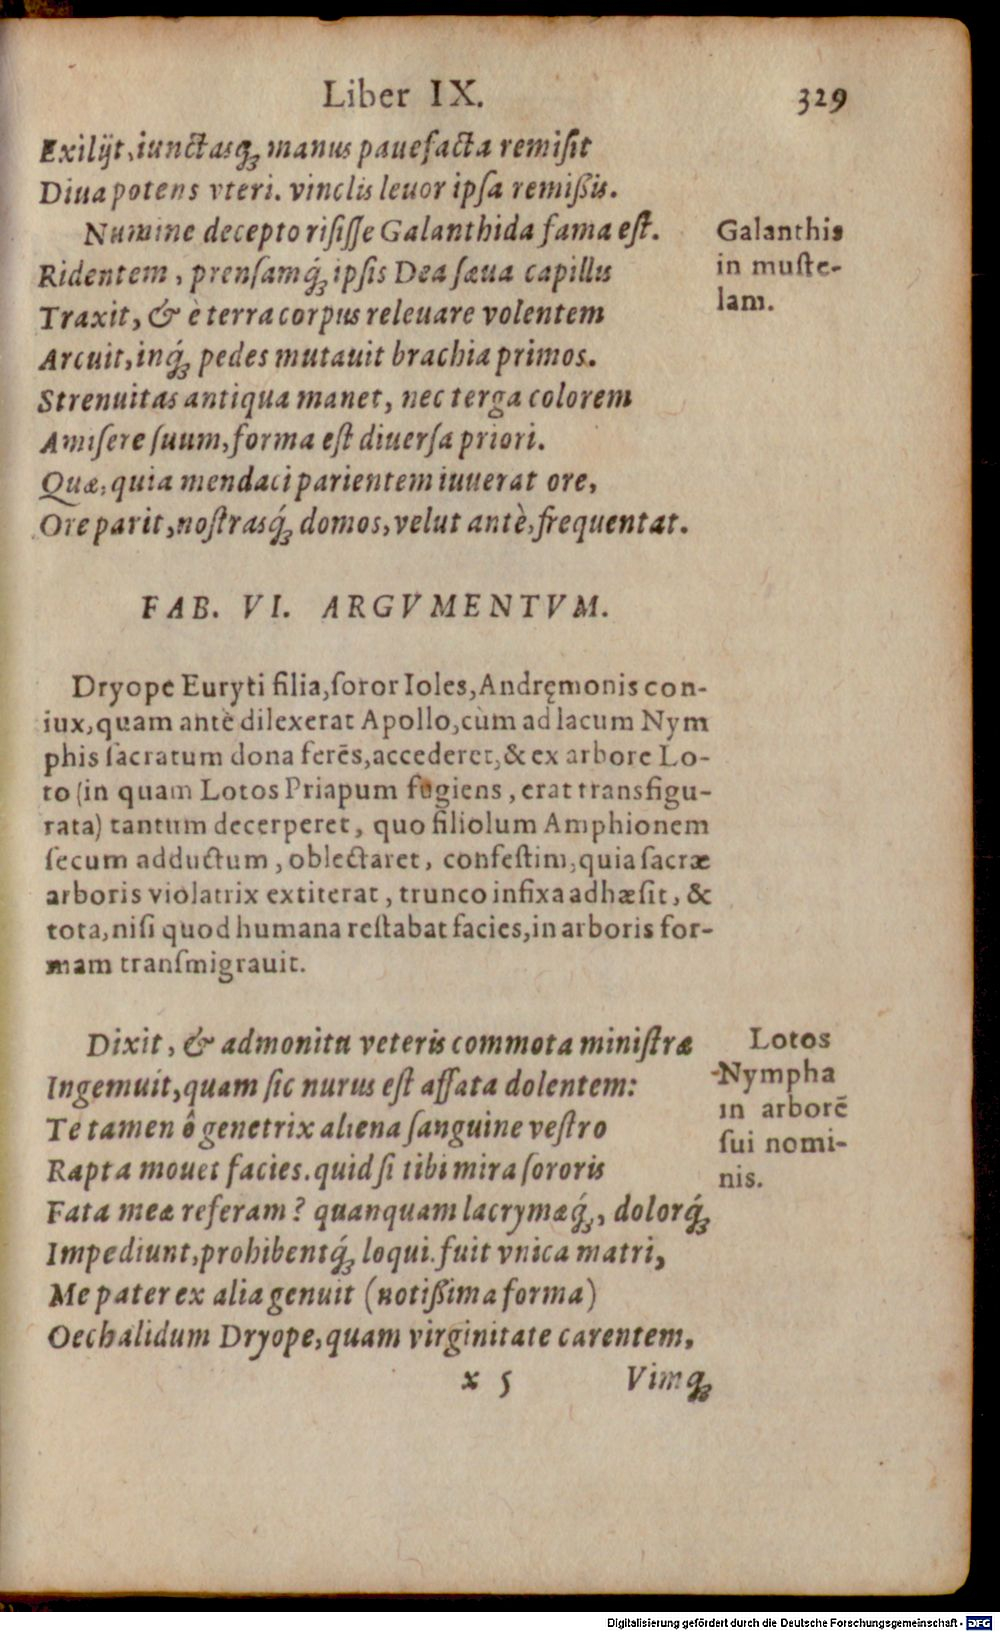 Liber IX. 329
Exilijt, iunctasqꝫ manus pauefacta remiſit
Diua potens vteri. vinclis leuor ipſa remißis.
Numine decepto riſiſſe Galanthida fama eſt.
Galanthis
in muſte-
lam.
Ridentem, prenſamq́ꝫ ipſis Dea ſæua capillis
Traxit, & è terra corpus releuare volentem
Arcuit, inq́ꝫ pedes mutauit brachia primos.
Strenuitas antiqua manet, nec terga colorem
Amiſere ſuum, forma eſt diuerſa priori.
Quæ, quia mendaci parientem iuuerat ore,
Ore parit, noſtrasq́ꝫ domos, velut antè, frequentat.
FAB. VI. ARGVMENTVM.
Dryope Euryti filia, ſoror Ioles, Andręmonis con-
iux, quam antè dilexerat Apollo, cùm ad lacum Nym
phis ſacratum dona ferēs, accederet, & ex arbore Lo-
to (in quam Lotos Priapum fugiens, erat transfigu-
rata) tantum decerperet, quo filiolum Amphionem
ſecum adductum, oblectaret, confeſtim, quia ſacræ
arboris violatrix extiterat, trunco infixa adhæſit, &
tota, niſi quod humana reſtabat facies, in arboris for-
mam tranſmigrauit.
Dixit, & admonitu veteris commota miniſtræ
Lotos
Nympha
in arborē
ſui nomi-
nis.
Ingemuit, quam ſic nurus eſt affata dolentem:
Te tamen ô genetrix aliena ſanguine veſtro
Rapta mouet facies. quid ſi tibi mira ſororis
Fata meæ referam? quanquam lacrymæq́ꝫ, dolorq́ꝫ
Impediunt, prohibentq́ꝫ loqui. fuit vnica matri,
Me pater ex alia genuit (notißima forma)
Oechalidum Dryope, quam virginitate carentem,
x 5 Vimqꝫ
Digitalisierung gefördert durch die Deutsche Forschungsgemeinschaft - DFG